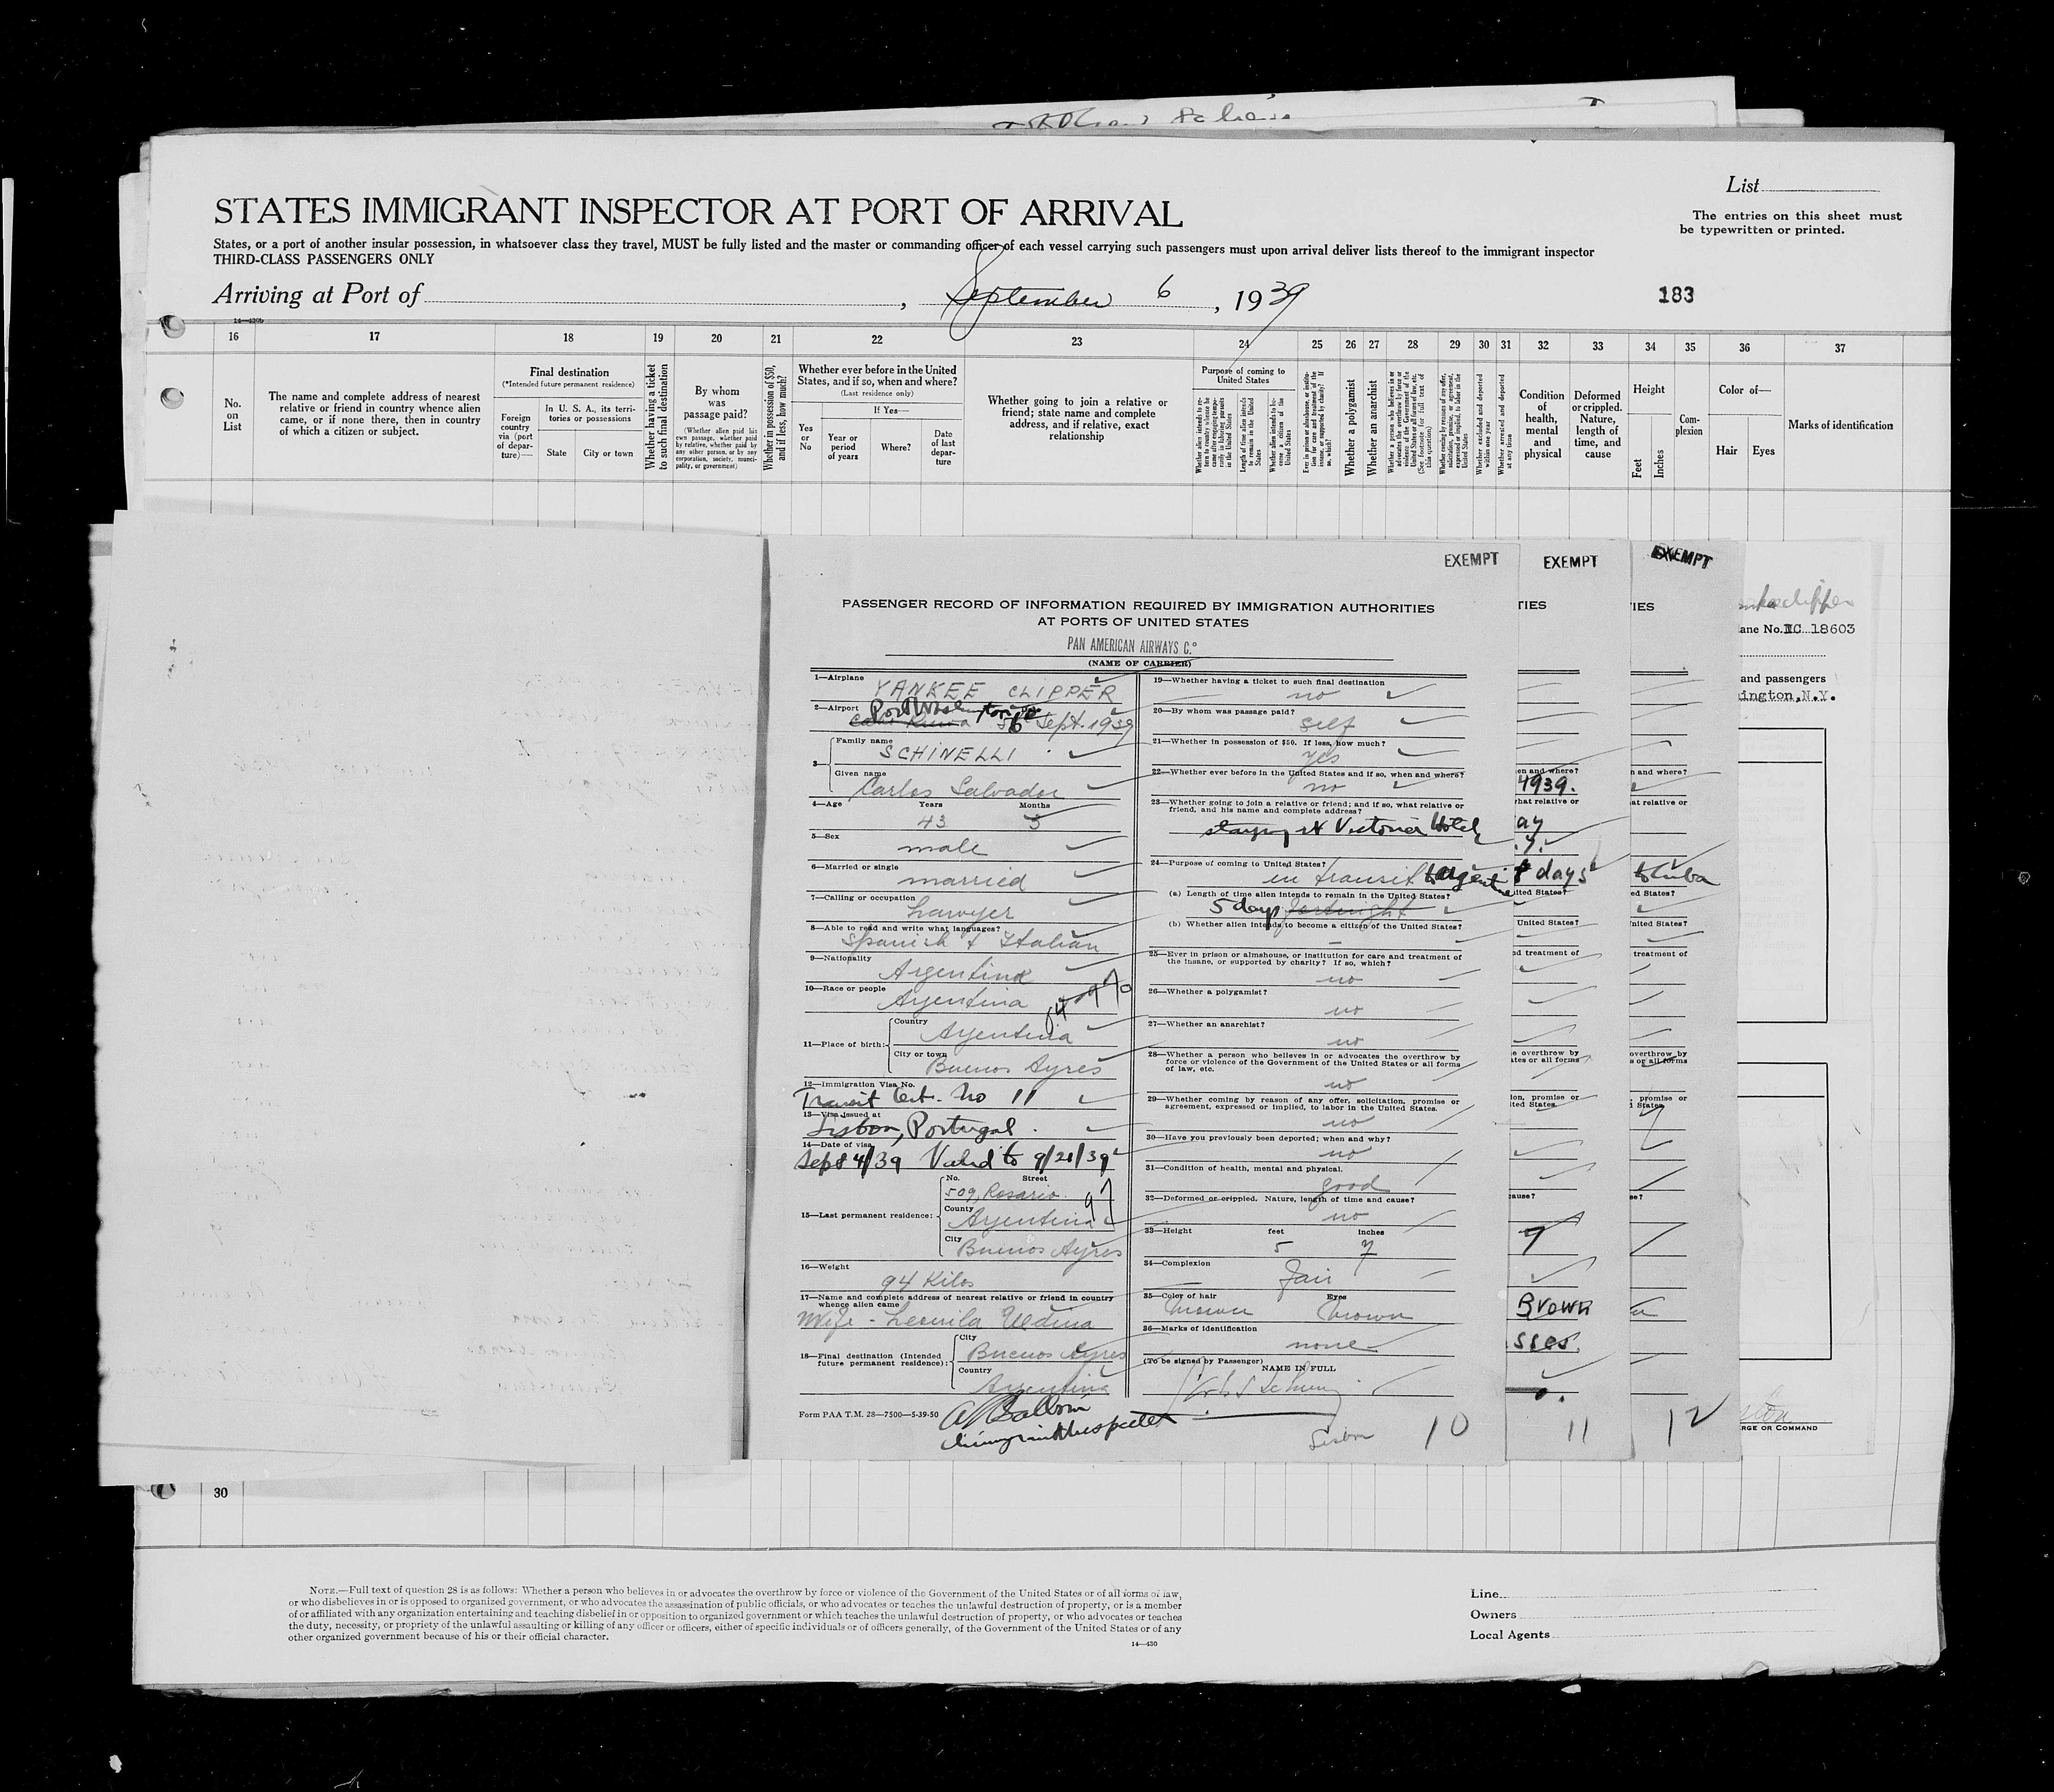 List
STATES IMMIGRANT INSPECTOR AT PORT OF ARRIVAL
The entries on this sheet must
be typewritten or printed.
States, or a port of another insular possession, in whatsoever class they travel, MUST be fully listed and the master or commanding officer of each vessel carrying such passengers must upon arrival deliver lists thereof to the immigrant inspector
THIRD-CLASS PASSENGERS ONLY
Arriving at Port of , September 6, 1939
183
16 17 18 19 20 21 22 23 24 25 26 27 28 29 30 31 32 33 34 35 36 37
No. on List
The name and complete address of nearest
relative or friend in country whence alien
came, or if none there, then in country
of which a citizen or subject.
Final destination
(*Intended future permanent residence)
Foreign country via (port of departure)—
In U. S. A., its territories or possessions
State
City or town
Whether having a ticket to such final destination
By whom was passage paid?
(Whether alien paid his own passage, whether paid by relative, whether paid by any other person, or by any corporation, society, municipality, or government)
Whether in possession of $50, and if less, how much?
Whether ever before in the United States, and if so, when and where?
(Last residence only)
Yes or No
If Yes—
Year or period of years
Where?
Date of last departure
Whether going to join a relative or
friend; state name and complete
address, and if relative, exact
relationship
Purpose of coming to United States
Length of time alien intends to remain in the United States
Whether alien intends to become a citizen of the United States
Whether a polygamist
Whether an anarchist
Whether excluded and deported within one year
Whether arrested and deported at any time
Condition of health, mental and physical
Deformed or crippled. Nature, length of time, and cause
Height
Feet
Inches
Complexion
Color of—
Hair
Eyes
Marks of identification
EXEMPT
EXEMPT
EXEMPT
PASSENGER RECORD OF INFORMATION REQUIRED BY IMMIGRATION AUTHORITIES
AT PORTS OF UNITED STATES
PAN AMERICAN AIRWAYS Co
(NAME OF CARRIER)
1—Airplane YANKEE CLIPPER
2—Airport Port Washington 6 Sept. 1939
3— Family name SCHINELLI
Given name Carlos Salvador
4—Age Years 43 Months 3
5—Sex male
6—Married or single married
7—Calling or occupation Lawyer
8—Able to read and write what languages? Spanish & Italian
9—Nationality Argentina
10—Race or people Argentina
11—Place of birth: Country Argentina
City or town Buenos Ayres
12—Immigration Visa No. Transit Cert. No 11
13—Visa issued at Lisbon, Portugal.
14—Date of visa Sept 4/39 Valid to 9/21/39
15—Last permanent residence: No. Street 509, Rosario
County Argentina
City Buenos Ayres
16—Weight 94 Kilos
17—Name and complete address of nearest relative or friend in country
whence alien came
Wife -
18—Final destination (Intended
future permanent residence): City Buenos Ayres
Country Argentina
Form PAA T.M. 28—7500—5-39-50
19—Whether having a ticket to such final destination
no
20—By whom was passage paid?
self
21—Whether in possession of $50. If less, how much?
yes
22—Whether ever before in the United States and if so, when and where?
no
23—Whether going to join a relative or friend; and if so, what relative or
friend, and his name and complete address?
staying at Victoria Hotel
24—Purpose of coming to United States?
in transit to Argentine
(a) Length of time alien intends to remain in the United States?
5 days fortnight
(b) Whether alien intends to become a citizen of the United States?
25—Ever in prison or almshouse, or institution for care and treatment of
the insane, or supported by charity? If so, which?
no
26—Whether a polygamist?
no
27—Whether an anarchist?
no
28—Whether a person who believes in or advocates the overthrow by
force or violence of the Government of the United States or all forms
of law, etc.
no
29—Whether coming by reason of any offer, solicitation, promise or
agreement, expressed or implied, to labor in the United States.
no
30—Have you previously been deported; when and why?
no
31—Condition of health, mental and physical.
good
32—Deformed or crippled. Nature, length of time and cause?
no
33—Height feet inches
5 7
34—Complexion
Fair
35—Color of hair Eyes
brown brown
36—Marks of identification
none
(To be signed by Passenger)
NAME IN FULL
Lisbon
10
11
12
TIES
IES
1939.
8 days
to Cuba
7
Brown
sses.
ane No. NC 18603
and passengers
ington, N.Y.
RGE OR COMMAND
30
NOTE.—Full text of question 28 is as follows: Whether a person who believes in or advocates the overthrow by force or violence of the Government of the United States or of all forms of law,
or who disbelieves in or is opposed to organized government, or who advocates the assassination of public officials, or who advocates or teaches the unlawful destruction of property, or is a member
of or affiliated with any organization entertaining and teaching disbelief in or opposition to organized government or which teaches the unlawful destruction of property, or who advocates or teaches
the duty, necessity, or propriety of the unlawful assaulting or killing of any officer or officers, either of specific individuals or of officers generally, of the Government of the United States or of any
other organized government because of his or their official character.
14—430
Line
Owners
Local Agents